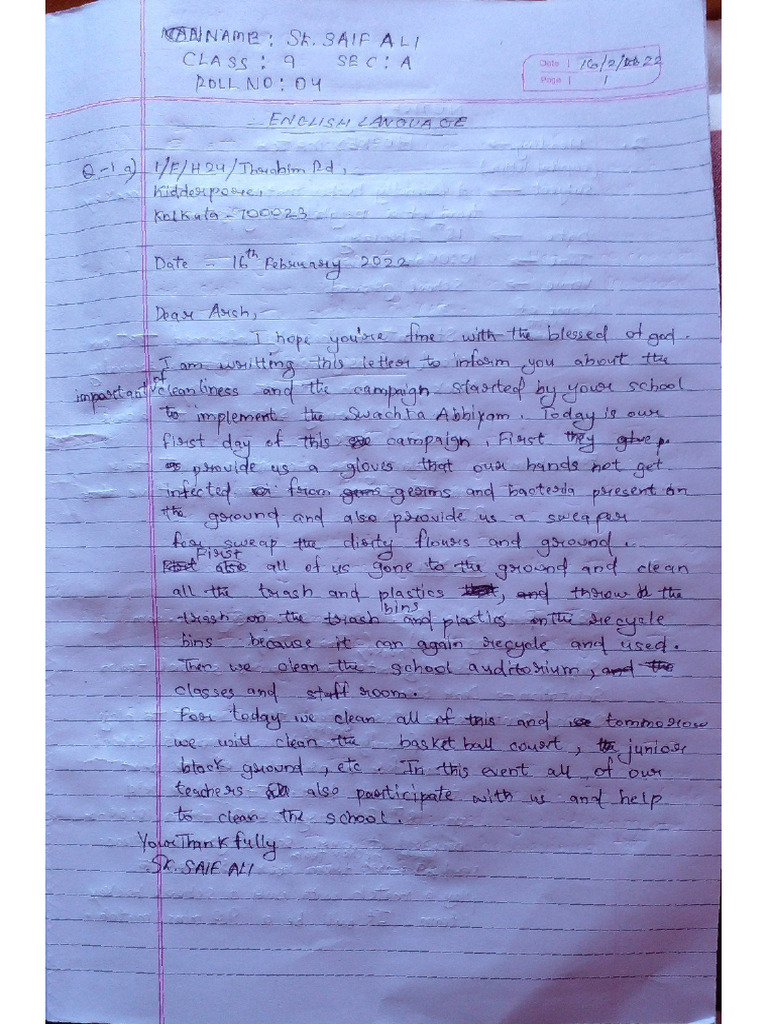 NAME: SK. SAIF ALI
CLASS: 9 SEC: A
ROLL NO: 04
Date 16/2/2022
Page 1
ENGLISH LANGUAGE
Q-1 a) 1/F/H24/Ibrahim Rd,
Kidderpore,
Kolkata-700023
Date - 16th February 2022
Dear Arsh,-
I hope you're fine with the blessed of god.
I am writting this letter to inform you about the
important of cleanliness and the campaign started by your school
to implement the Swachta Abhiyam. Today is our
first day of this campaign. First they
provide us a gloves that our hands not get
infected from germs and bacteria present on
the ground and also provide us a sweaper
for sweap the dirty flours and ground.
First all of us gone to the ground and clean
all the trash and plastics, throw the
trash on the trash bins and plastics on the recycle
bins because it can again recycle and used.
Then we clean the school auditorium,
classes and staff room.
For today we clean all of this and tommorow
we will clean the basket ball court, junior
block ground, etc. In this event all of our
teachers also participate with us and help
to clean the school.
Your Thankfully
SK. SAIF ALI